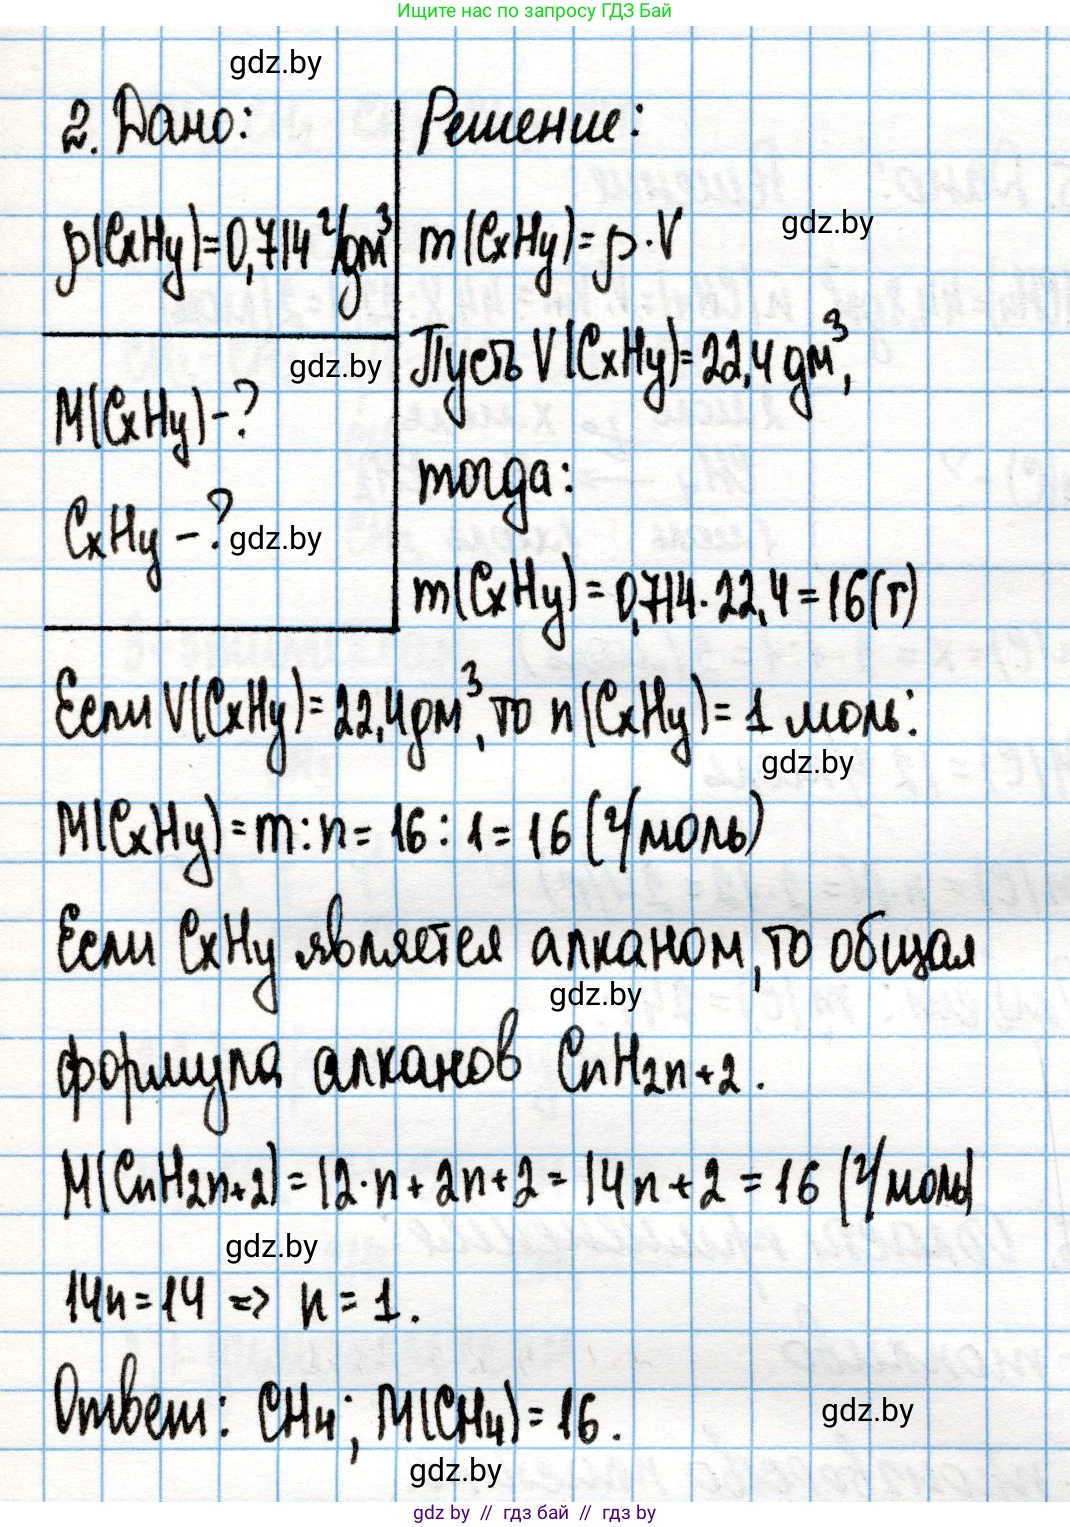 Ищите нас по запросу ГДЗ Бай
gdz.by
2. Дано:
ρ(CxHy)=0,714 г/дм³
M(CxHy)-?
gdz.by
CxHy-?
gdz.by
Решение:
gdz.by
m(CxHy)=ρ·V
Пусть V(CxHy)=22,4 дм³,
тогда:
m(CxHy)=0,714·22,4=16(г)
Если V(CxHy)=22,4дм³, то n(CxHy)=1 моль:
gdz.by
M(CxHy)=m:n=16:1=16 (г/моль)
Если CxHy является алканом, то общая
gdz.by
формула алканов CnH2n+2.
M(CnH2n+2)=12·n+2n+2=14n+2=16 (г/моль)
gdz.by
14n=14 => n=1.
Ответ: CH4; M(CH4)=16.
gdz.by
gdz.by
gdz by // гдз бай // гдз by